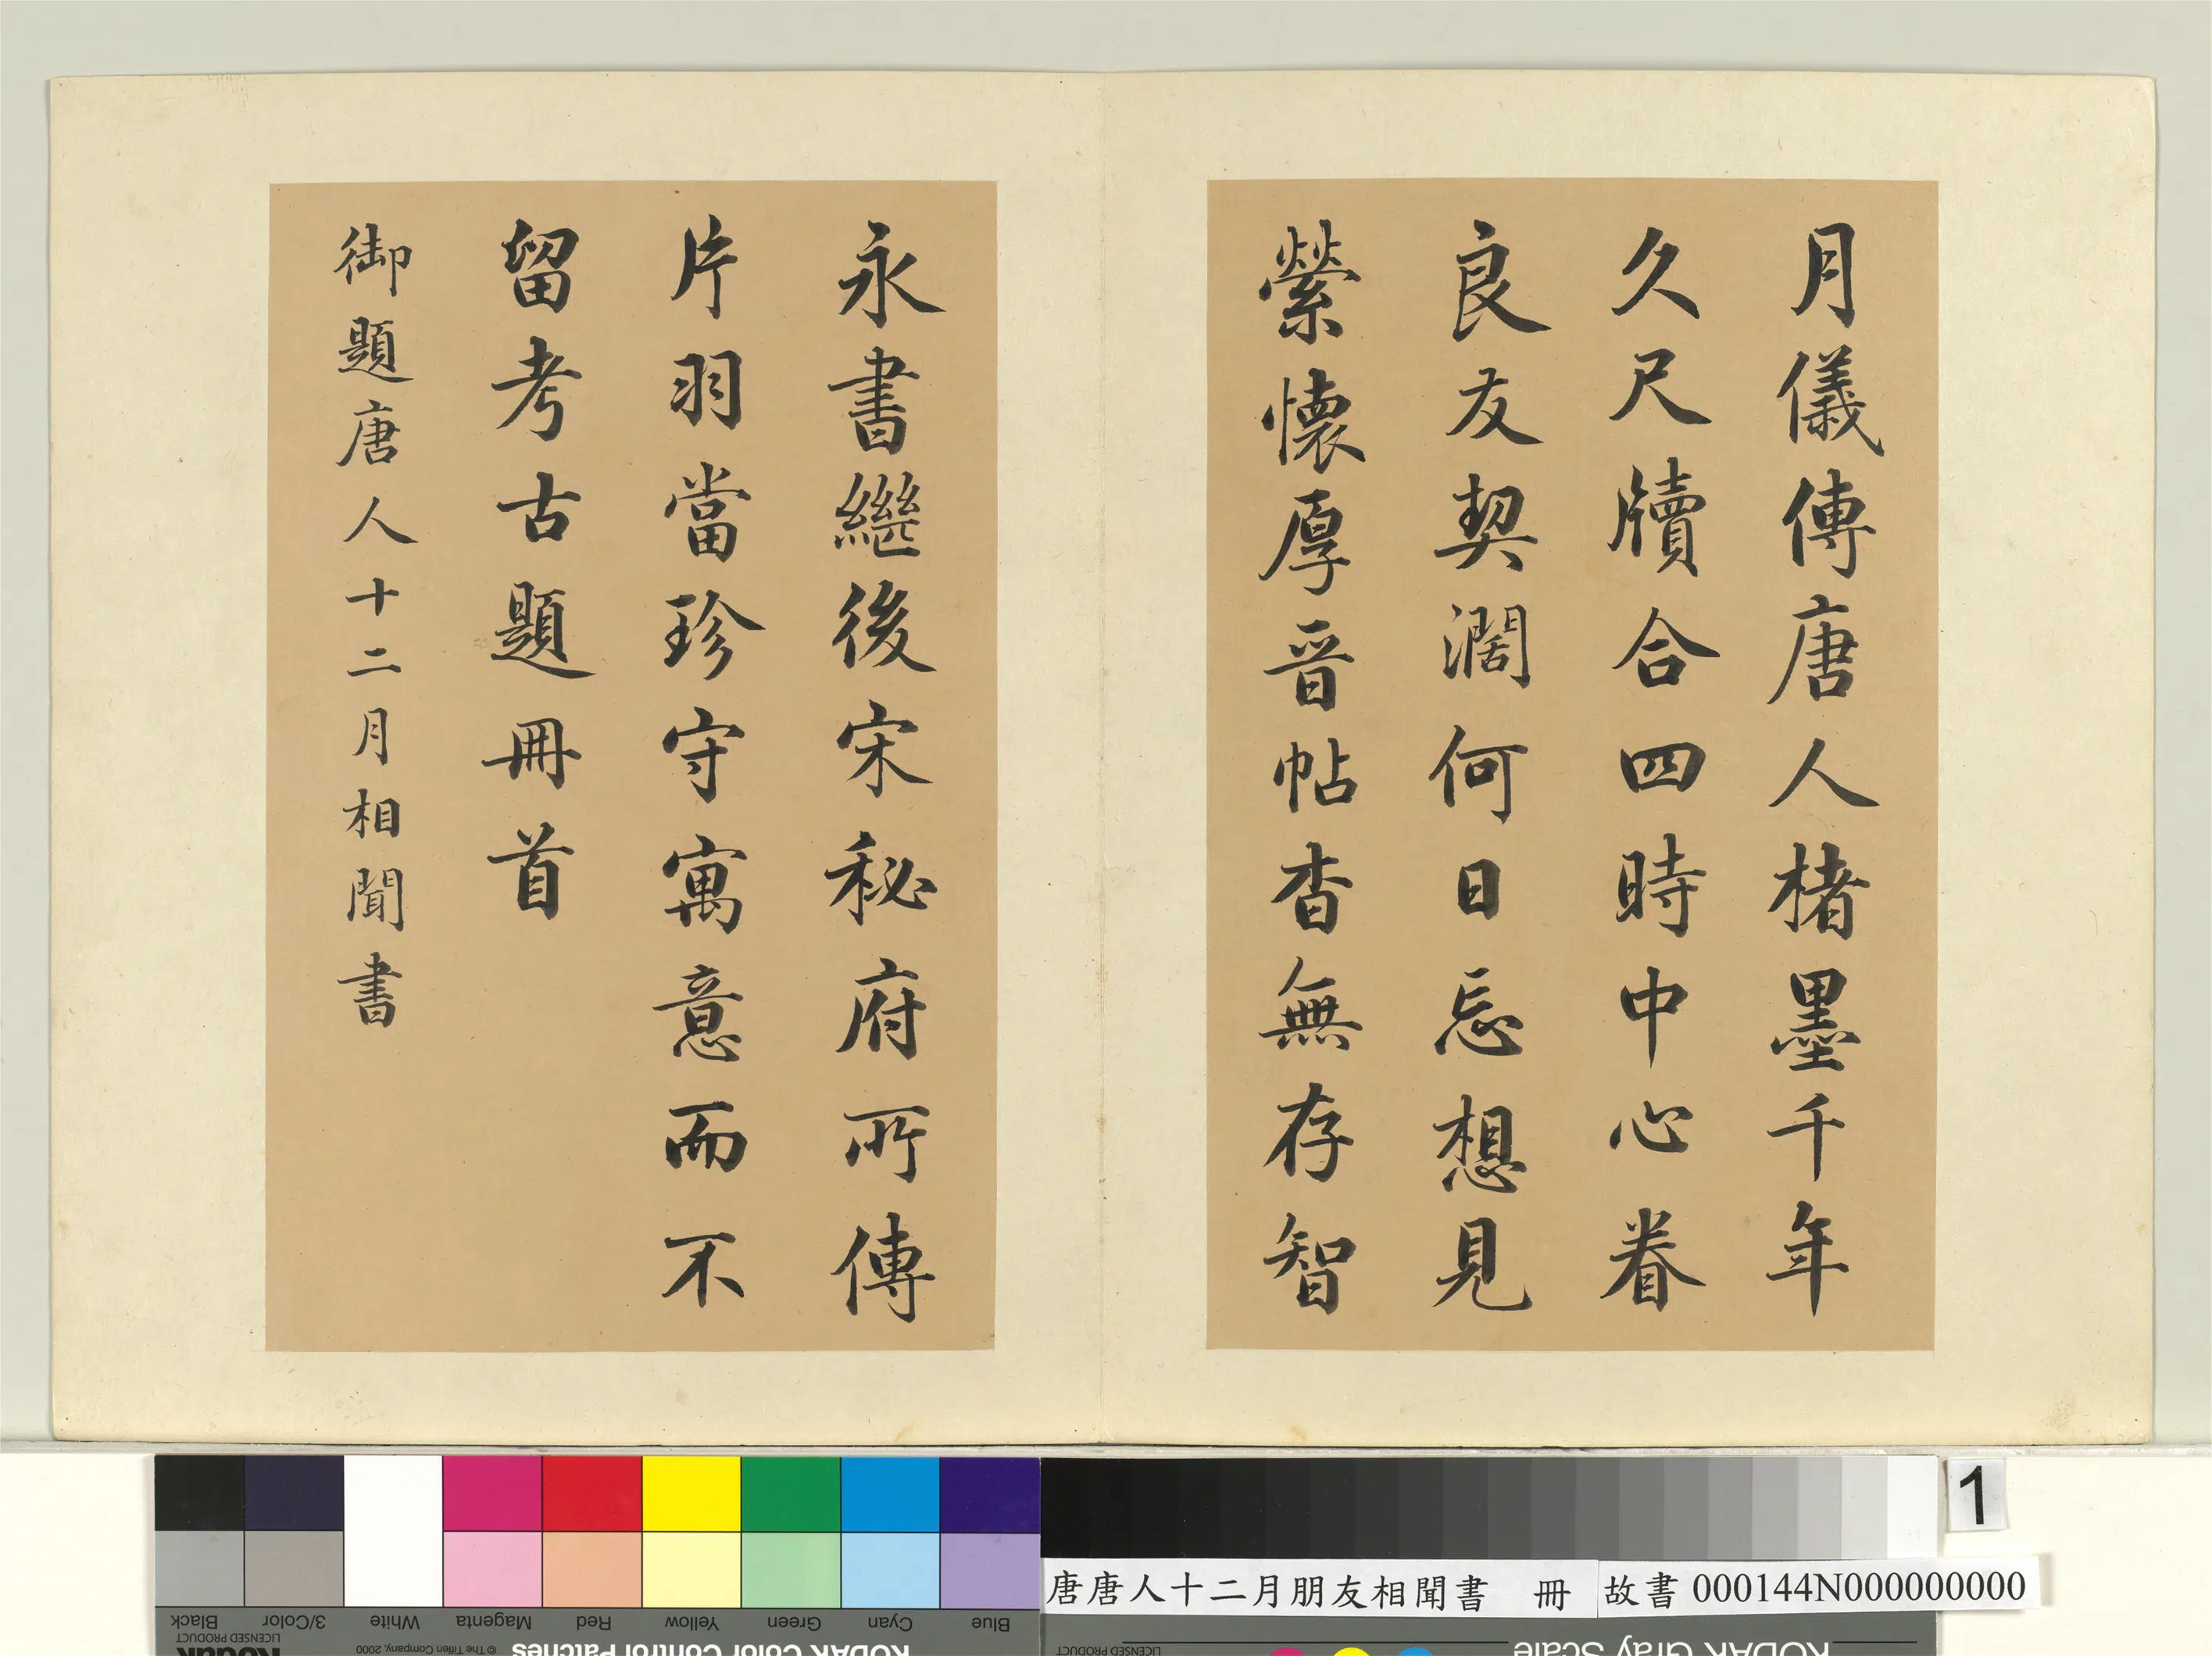 月儀傳唐人楮墨千年
久尺牘合四時中心眷
良友契濶何日忘想見
縈懷厚晉帖杳無存智
永書繼後宋秘府所傳
片羽當珍守寓意而不
留考古題冊首
御題唐人十二月相聞書
1
唐唐人十二月朋友相聞書 冊
故書 000144N000000000
Blue
Cyan
Green
Yellow
Red
Magenta
White
3/Color
Black
KODAK Color Control Patches
© The Tiffen Company, 2000
Kodak
LICENSED PRODUCT
KODAK Gray Scale
LICENSED PRODUCT